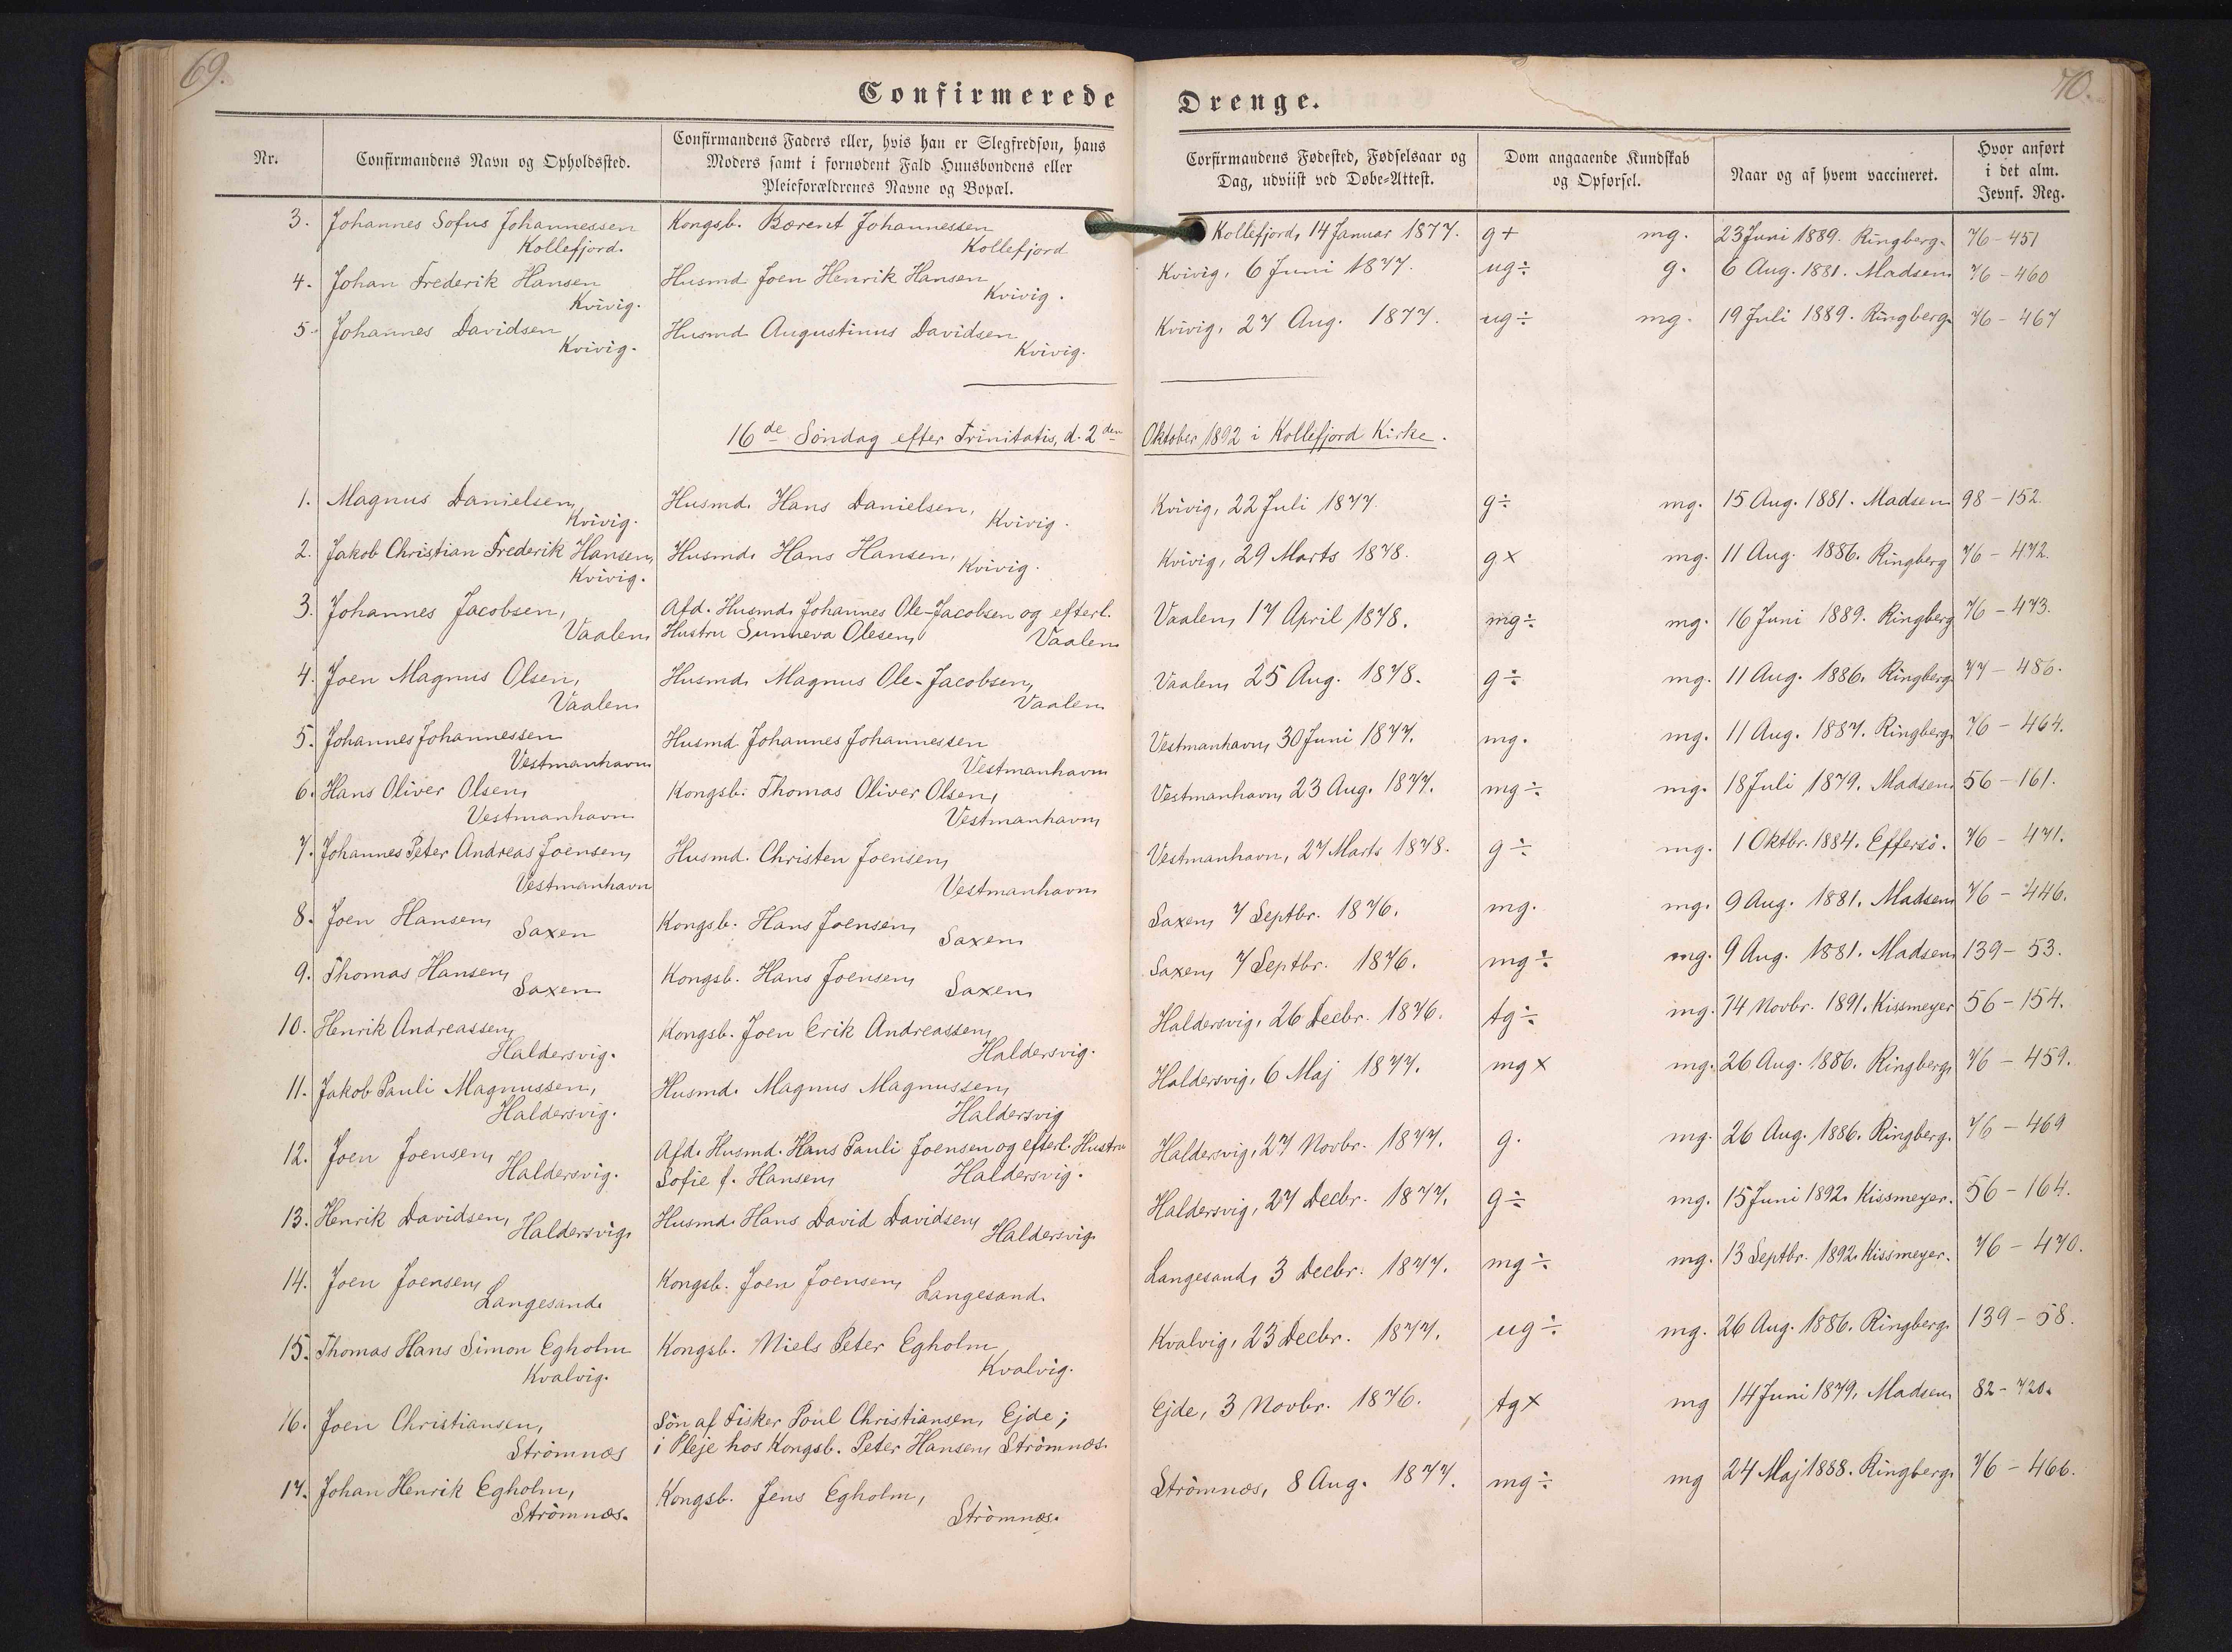 69.
70.
Confirmerede Drenge.
Nr.
Confirmandens Navn og Opholdssted.
Confirmandens Faders eller, hvis han er Slegfredsøn, hans
Moders samt i fornødent Fald Huusbondens eller
Pleieforældrenes Navne og Bopæl.
Corfirmandens Fødested, Fødselsaar og
Dag, udviist ved Døbe-Attest.
Dom angaaende Kundskab
og Opførsel.
Naar og af hvem vaccineret.
Hvor anført
i det alm.
Jevnf. Reg.
3. Johannes Sofus Johannessen Kongsb. Berent Johannessen Kollefjord, 14 Januar 1877. g+ mg. 23 Juni 1889. Ringberg. 76-451
Kollefjord. Kollefjord
4. Johan Frederik Hansen Husmd Joen Henrik Hansen Kvivig, 6 Juni 1877. ug÷ g. 6 Aug. 1881. Madsen 76-460
Kvivig. Kvivig.
5. Johannes Davidsen Husmd Augustinus Davidsen Kvivig, 27 Aug. 1877. ug÷ mg. 19 Juli 1889. Ringberg. 76-467
Kvivig. Kvivig.
16de Søndag efter Trinitatis, d. 2den Oktober 1892 i Kollefjord Kirke.
1. Magnus Danielsen, Husmd. Hans Danielsen, Kvivig, 22 Juli 1877. g÷ mg. 15 Aug. 1881. Madsen 98-152.
Kvivig. Kvivig.
2. Jakob Christian Frederik Hansen, Husmd. Hans Hansen, Kvivig, 29 Marts 1878. g× mg. 11 Aug. 1886. Ringberg 76-472.
Kvivig. Kvivig.
3. Johannes Jacobsen, Afd. Husmd. Johannes Ole-Jacobsen og efterl. Vaalen, 17 April 1878. mg÷ mg. 16 Juni 1889. Ringberg 76-473.
Vaalen Hustru Sunneva Olesen, Vaalen
4. Joen Magnus Olsen, Husmd. Magnus Ole-Jacobsen, Vaalen, 25 Aug. 1878. g÷ mg. 11 Aug. 1886. Ringberg. 77-486.
Vaalen. Vaalen.
5. Johannes Johannessen Husmd. Johannes Johannessen Vestmanhavn, 30 Juni 1877. mg. mg. 11 Aug. 1887. Ringberg. 76-464.
Vestmanhavn Vestmanhavn
6. Hans Oliver Olsen, Kongsb. Thomas Oliver Olsen, Vestmanhavn, 23 Aug. 1877. mg÷ mg. 18 Juli 1879. Madsen 56-161.
Vestmanhavn Vestmanhavn,
7. Johannes Peter Andreas Joensen, Husmd. Christen Joensen, Vestmanhavn, 27 Marts 1878. g÷ mg. 1 Oktbr. 1884. Effersö. 76-471.
Vestmanhavn Vestmanhavn
8. Joen Hansen, Saxen Kongsb. Hans Joensen, Saxen Saxen, 7 Septbr. 1876. mg. mg. 9 Aug. 1881. Madsen 76-446.
9. Thomas Hansen, Saxen Kongsb. Hans Joensen, Saxen Saxen, 7 Septbr. 1876. mg÷ mg. 9 Aug. 1881. Madsen 139-53.
10. Henrik Andreassen, Kongsb. Joen Erik Andreassen, Haldersvig, 26 Decbr. 1876. tg÷ mg. 14 Novbr. 1891. Kissmeyer 56-154.
Haldersvig. Haldersvig.
11. Jakob Pauli Magnussen, Husmd. Magnus Magnussen, Haldersvig, 6 Maj 1877. mg× mg. 26 Aug. 1886. Ringberg, 76-459.
Haldersvig. Haldersvig
12. Joen Joensen, Afd. Husmd. Hans Pauli Joensen og efterl. Hustru Haldersvig, 27 Novbr. 1877. g. mg. 26 Aug. 1886. Ringberg. 76-469
Haldersvig. Sofie f. Hansen, Haldersvig.
13. Henrik Davidsen, Husmd. Hans David Davidsen, Haldersvig, 27 Decbr. 1877. g÷ mg. 15 Juni 1892. Kissmeyer. 56-164.
Haldersvig. Haldersvig.
14. Joen Joensen, Kongsb. Joen Joensen, Langesand, 3 Decbr. 1877. mg÷ mg. 13 Septbr. 1892. Kissmeyer. 76-470.
Langesand. Langesand.
15. Thomas Hans Simon Egholm Kongsb. Niels Peter Egholm Kvalvig, 23 Decbr. 1877. ug÷ mg. 26 Aug. 1886. Ringberg. 139-58.
Kvalvig. Kvalvig.
16. Joen Christiansen, Søn af Fisker Poul Christiansen, Ejde; Ejde, 3 Novbr. 1876. tg× mg 14 Juni 1879. Madsen 82-720.
Strömnæs i Pleje hos Kongsb. Peter Hansen, Strömnæs.
17. Johan Henrik Egholm, Kongsb. Jens Egholm, Strömnæs, 8 Aug. 1877. mg÷ mg 24 Maj 1888. Ringberg. 76-466.
Strömnæs. Strömnæs.